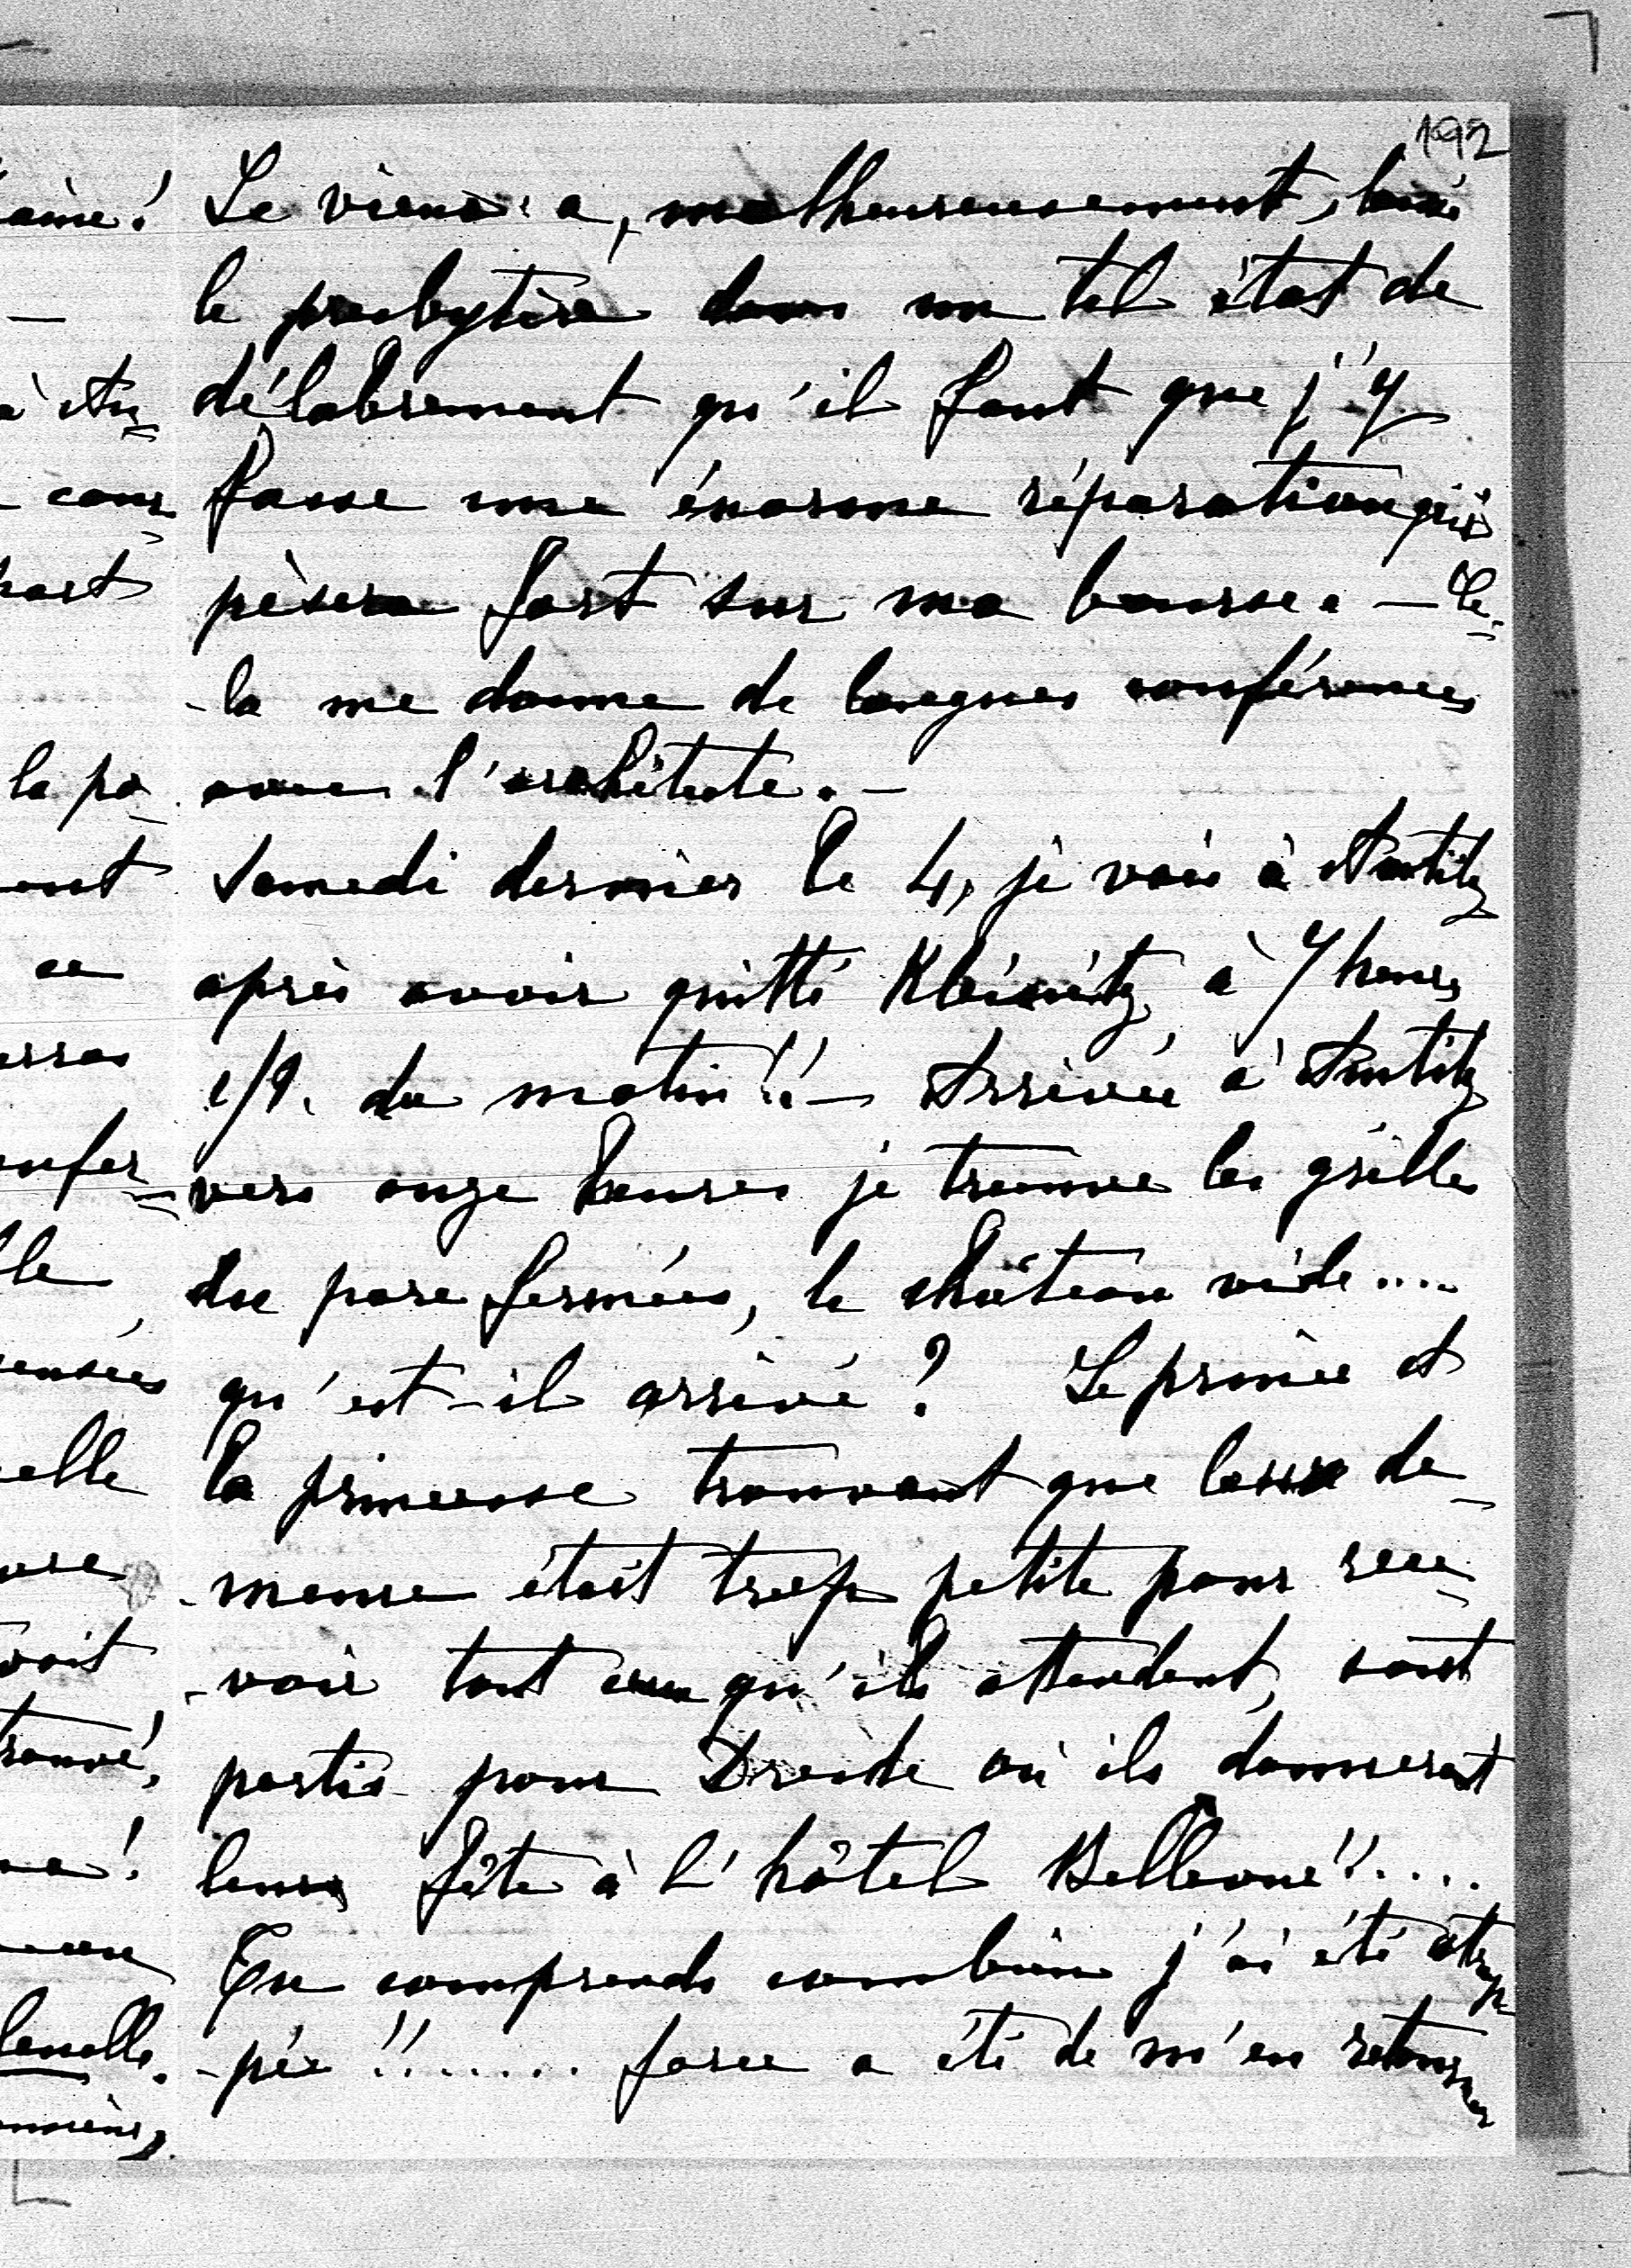 192
Le vieux a, malheureusement, laissé
le presbytère dans un tel état de
délabrement qu'il faut que j'y
fasse une énorme réparation qui
pèsera fort sur ma bourse. — Ce-
-la me donne de longues conférences
avec l'architecte. —
Samedi dernier le 4, je vais à
après avoir quitté à 7 heures
1/2 du matin!! — Arrivée à
vers onze heures je trouve les grilles
du parc fermées, le château vide....
qu'est-il arrivé? Le prince et
la princesse trouvant que leur de-
-meure était trop petite pour rece-
-voir tout ceux qu'ils attendent, sont
partis pour Dresde où ils donneront
leurs fête à l'hôtel Bellevue!!....
Tu comprends combien j'ai été attrap-
-pée!!....... force a été de m'en retourner